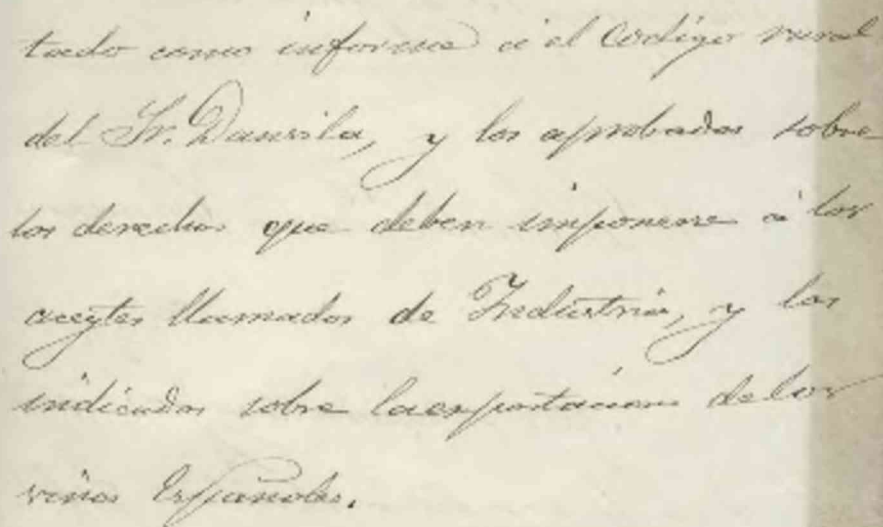 tado como informe á el Codigo rural
del Sr. Danvila, y los aprobados sobre
los derechos que deben imponerse á los
aceytes llamados de Industria, y los
indicados sobre la exportacion de los
vinos Españoles.